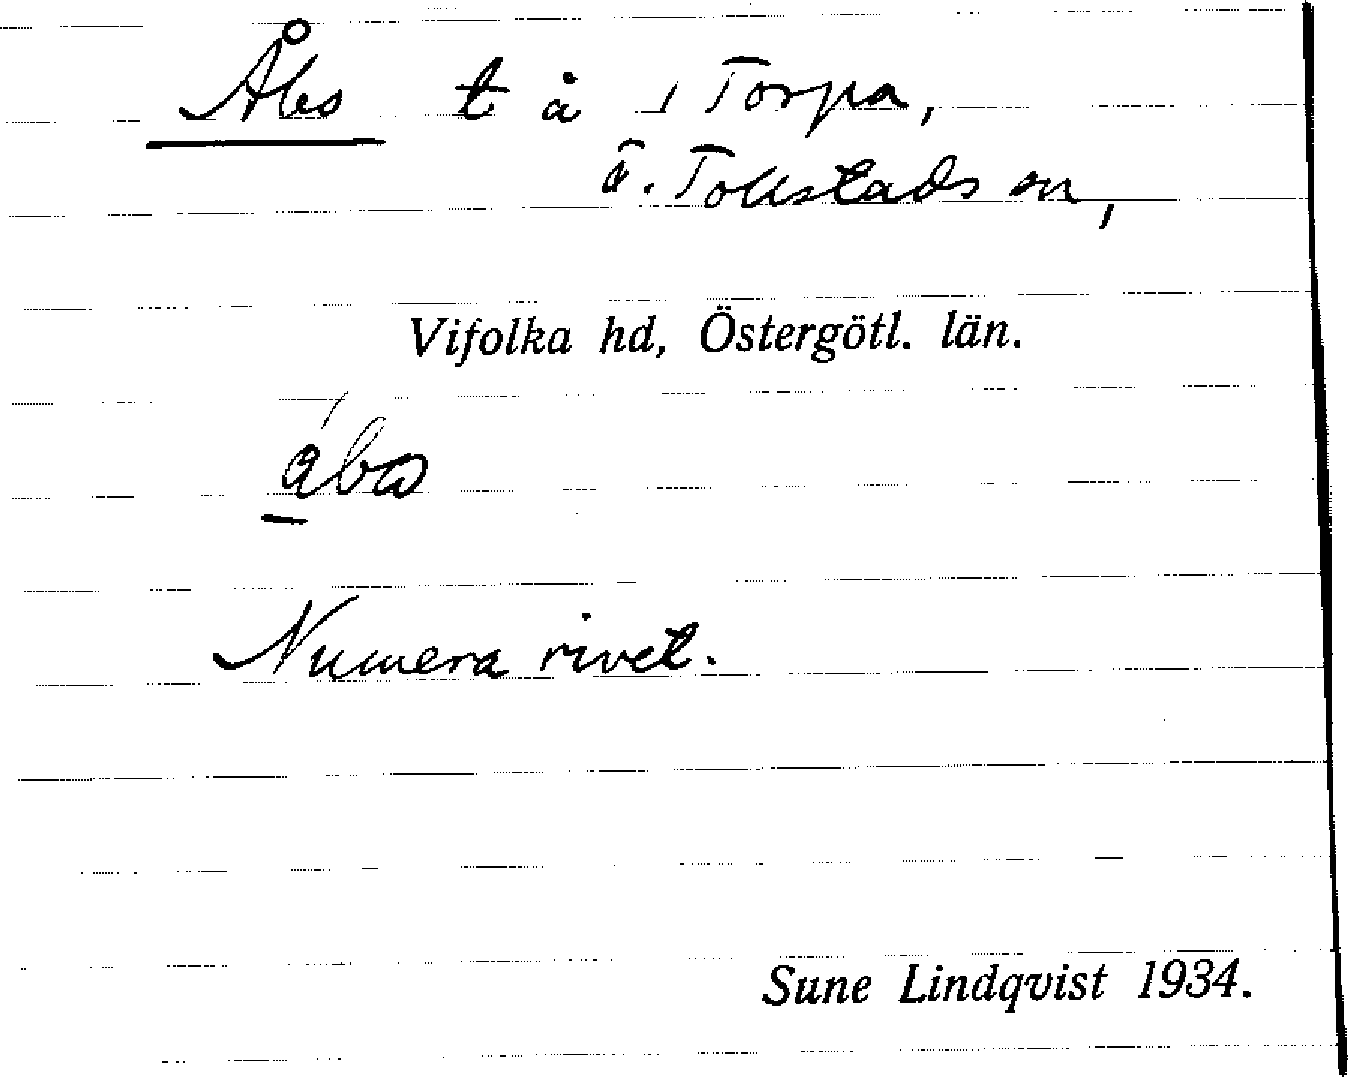 Åbs t å 1 Torpa,
V. Tollstads sn,
Vifolka hd, Östergötl. län.
åbs
Numera rivet.
Sune Lindqvist 1934.